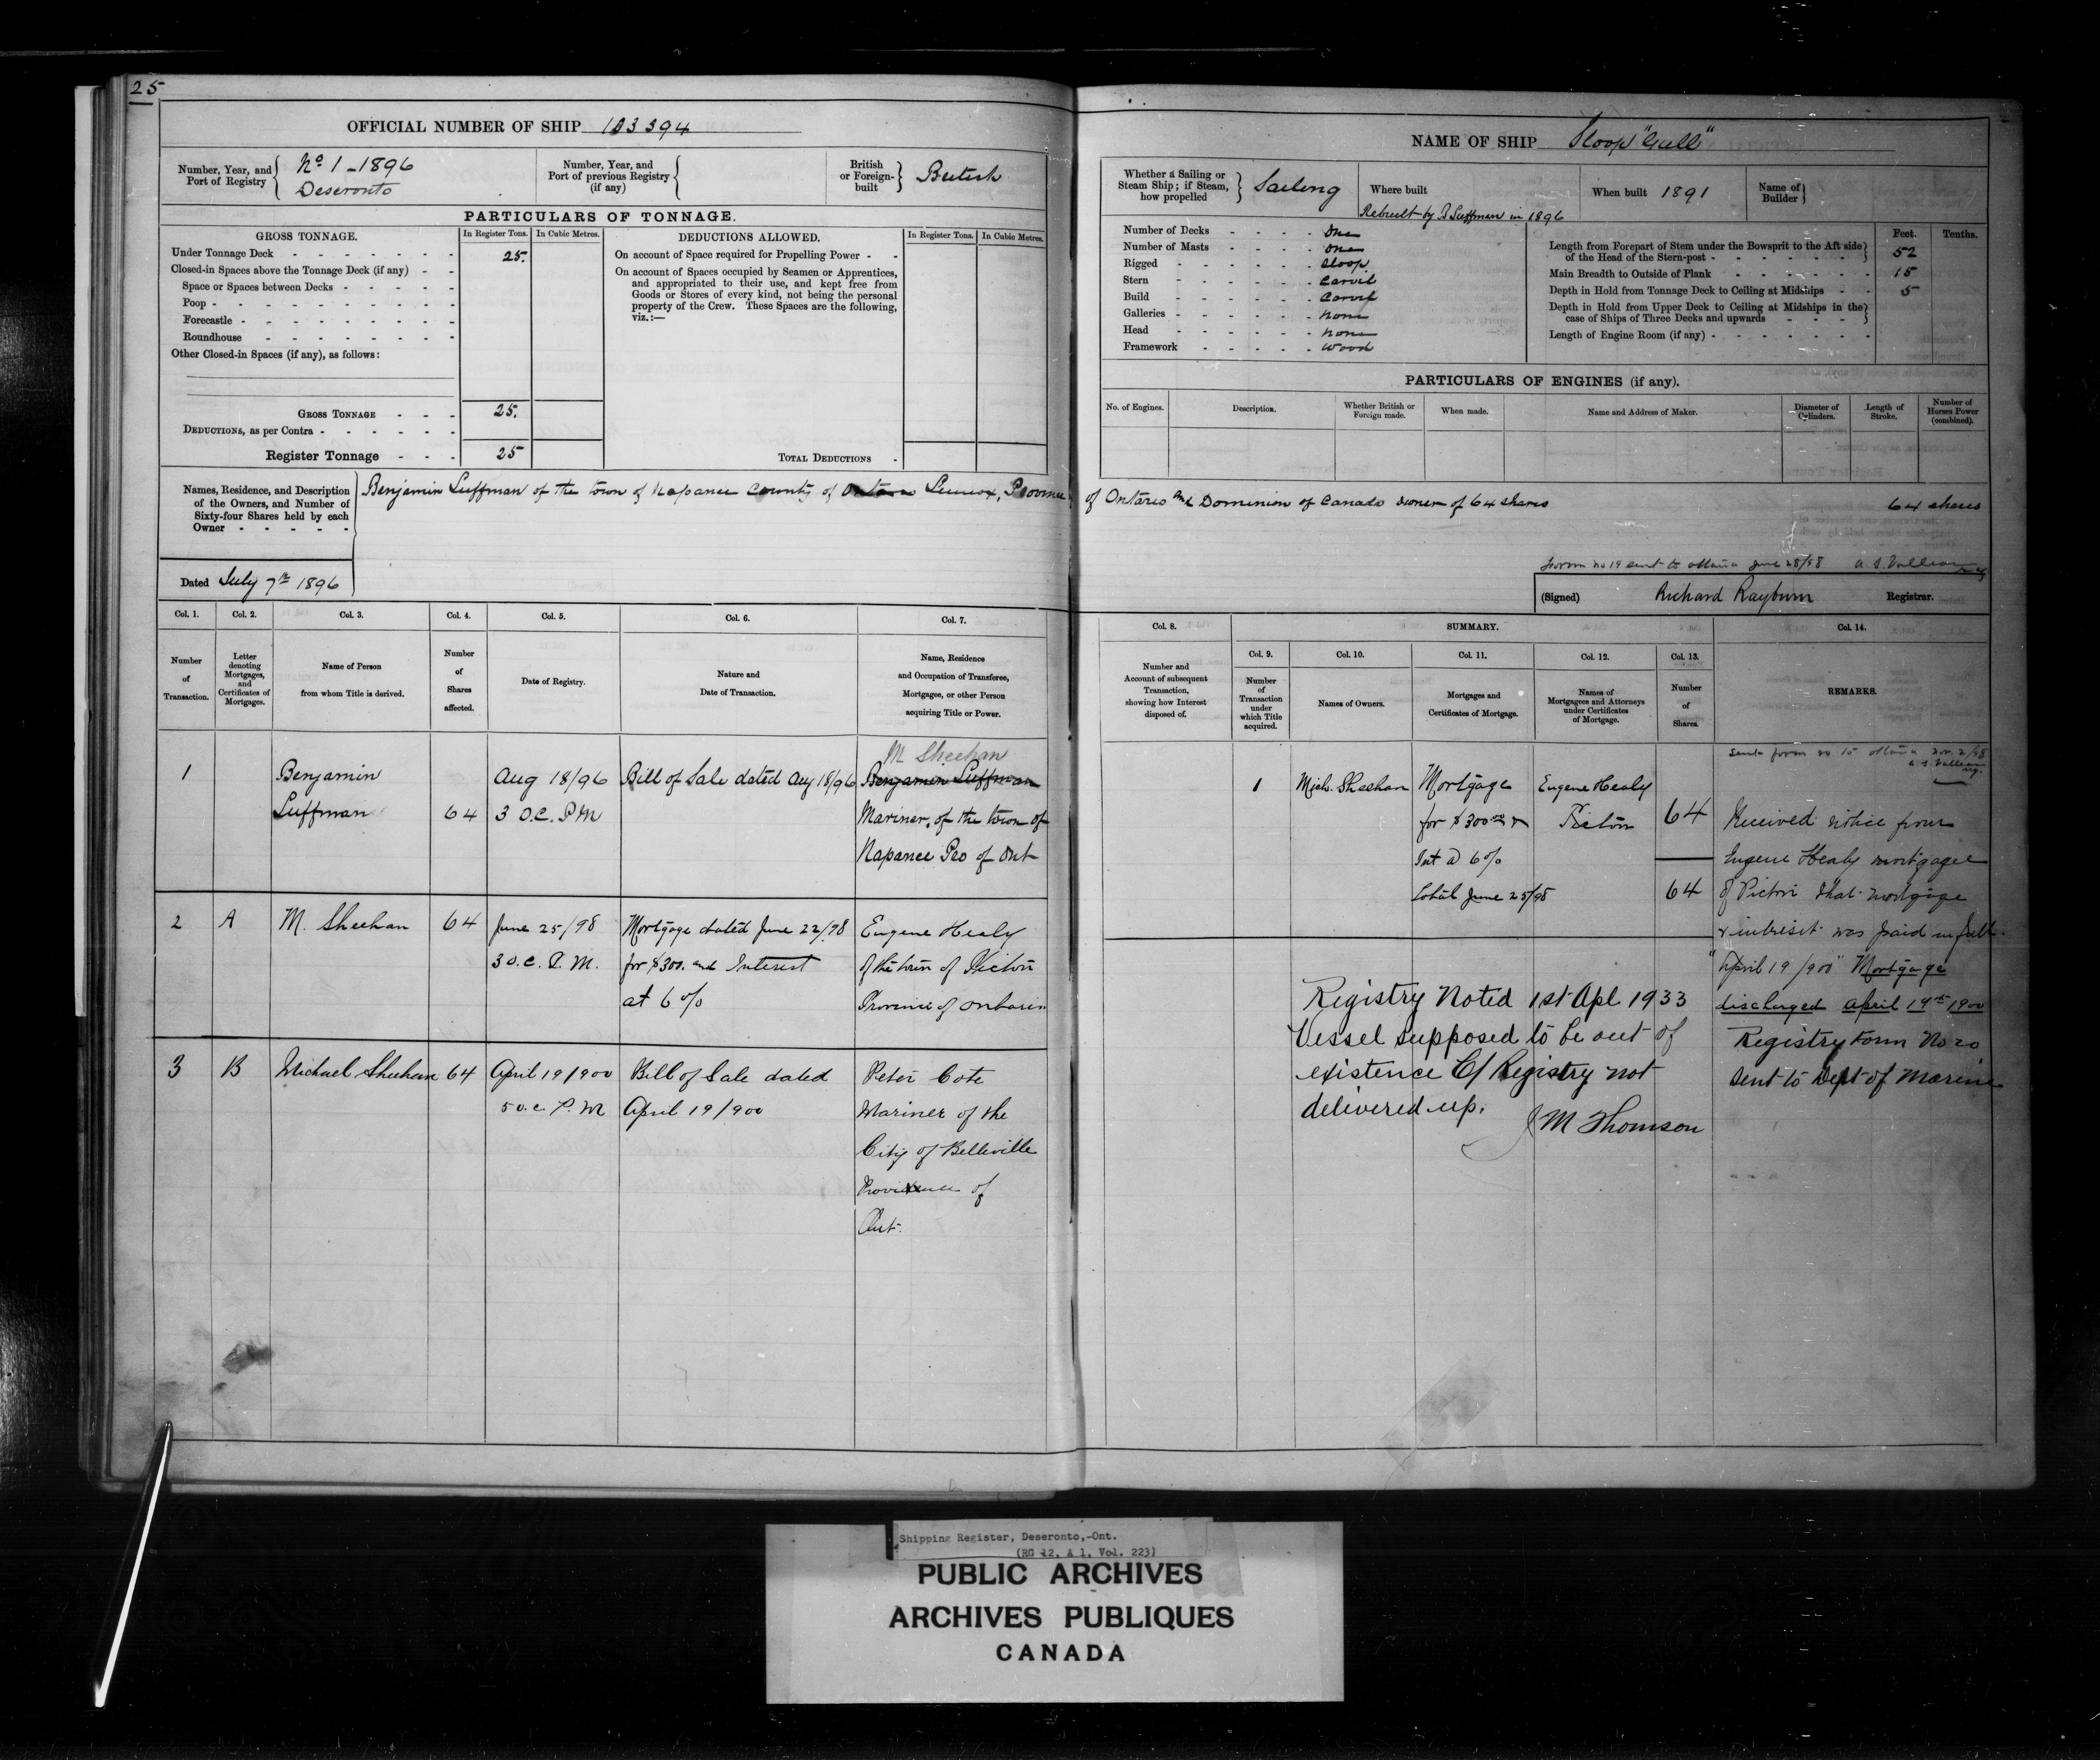 25
OFFICIAL NUMBER OF SHIP 103394
Number, Year, and Port of Registry
No 1 - 1896
Deseronto
Number, Year, and Port of previous Registry (if any)
British or Foreign-built
British
PARTICULARS OF TONNAGE.
GROSS TONNAGE.
In Register Tons.
In Cubic Metres.
DEDUCTIONS ALLOWED.
In Register Tons.
In Cubic Metres.
Under Tonnage Deck 25.
Closed-in Spaces above the Tonnage Deck (if any)
Space or Spaces between Decks
Poop
Forecastle
Roundhouse
Other Closed-in Spaces (if any), as follows:
GROSS TONNAGE 25.
DEDUCTIONS, as per Contra
Register Tonnage 25
On account of Space required for Propelling Power
On account of Spaces occupied by Seamen or Apprentices,
and appropriated to their use, and kept free from
Goods or Stores of every kind, not being the personal
property of the Crew. These Spaces are the following,
viz.:—
TOTAL DEDUCTIONS
NAME OF SHIP Sloop "Gull"
Whether a Sailing or Steam Ship; if Steam, how propelled
Sailing
Where built
Rebuilt by B Suffman in 1896
When built 1891
Name of Builder
Number of Decks One
Number of Masts One
Rigged Sloop
Stern Carvil
Build Carvil
Galleries None
Head None
Framework Wood
Feet. Tenths.
Length from Forepart of Stem under the Bowsprit to the Aft side of the Head of the Stern-post 52
Main Breadth to Outside of Plank 15
Depth in Hold from Tonnage Deck to Ceiling at Midships 5
Depth in Hold from Upper Deck to Ceiling at Midships in the case of Ships of Three Decks and upwards
Length of Engine Room (if any)
PARTICULARS OF ENGINES (if any).
No. of Engines.
Description.
Whether British or Foreign made.
When made.
Name and Address of Maker.
Diameter of Cylinders.
Length of Stroke.
Number of Horses Power (combined).
Names, Residence, and Description
of the Owners, and Number of
Sixty-four Shares held by each
Owner
Benjamin Suffman of the town of Napanee County of Lennox, Province of Ontario and Dominion of Canada owner of 64 shares 64 shares
Form no 19 sent to Ottawa June 28/98 A. S. Valleau reg
Dated July 7th 1896
(Signed) Richard Rayburn Registrar.
Col. 1.
Number of Transaction.
Col. 2.
Letter denoting Mortgages, and Certificates of Mortgages.
Col. 3.
Name of Person from whom Title is derived.
Col. 4.
Number of Shares affected.
Col. 5.
Date of Registry.
Col. 6.
Nature and Date of Transaction.
Col. 7.
Name, Residence and Occupation of Transferee, Mortgagee, or other Person acquiring Title or Power.
Col. 8.
Number and Account of subsequent Transaction, showing how Interest disposed of.
SUMMARY.
Col. 9.
Number of Transaction under which Title acquired.
Col. 10.
Names of Owners.
Col. 11.
Mortgages and Certificates of Mortgage.
Col. 12.
Names of Mortgagees and Attorneys under Certificates of Mortgage.
Col. 13.
Number of Shares.
Col. 14.
REMARKS.
1
Benjamin
Suffman
64
Aug 18/96
3 O.C. P M
Bill of Sale dated Aug 18/96
M Sheehan
Benjamin Suffman
Mariner, of the town of
Napanee Pro of Ont
2
A
M. Sheehan
64
June 25/98
3 O.C. P. M.
Mortgage dated June 22/98
for $300. and Interest
at 6%
Eugene Healy
of the town of Picton
Province of Ontario
3
B
Michael Sheehan
64
April 19/900
5 o.c. P. M
Bill of Sale dated
April 19/900
Peter Cote
Mariner of the
City of Belleville
Province of
Ont.
1
Mich. Sheehan
Mortgage
for $300.00 &
Int @ 6%
Total June 25/98
Eugene Healy
Picton
64
64
Sent form no 15 Ottawa Nov. 2/98
A. S. Valleau
reg.
Received notice from
Eugene Healy mortgagee
of Picton that mortgage
& interest was paid in full.
"April 19/900" Mortgage
discharged April 19th 1900
Registry Form No 20
sent to Dept of Marine
Registry Noted 1st Apl 1933
Vessel supposed to be out of
existence C/ Registry not
delivered up.
J M Thomson
Shipping Register, Deseronto,-Ont.
(RG 12, A 1, Vol. 223)
PUBLIC ARCHIVES
ARCHIVES PUBLIQUES
CANADA